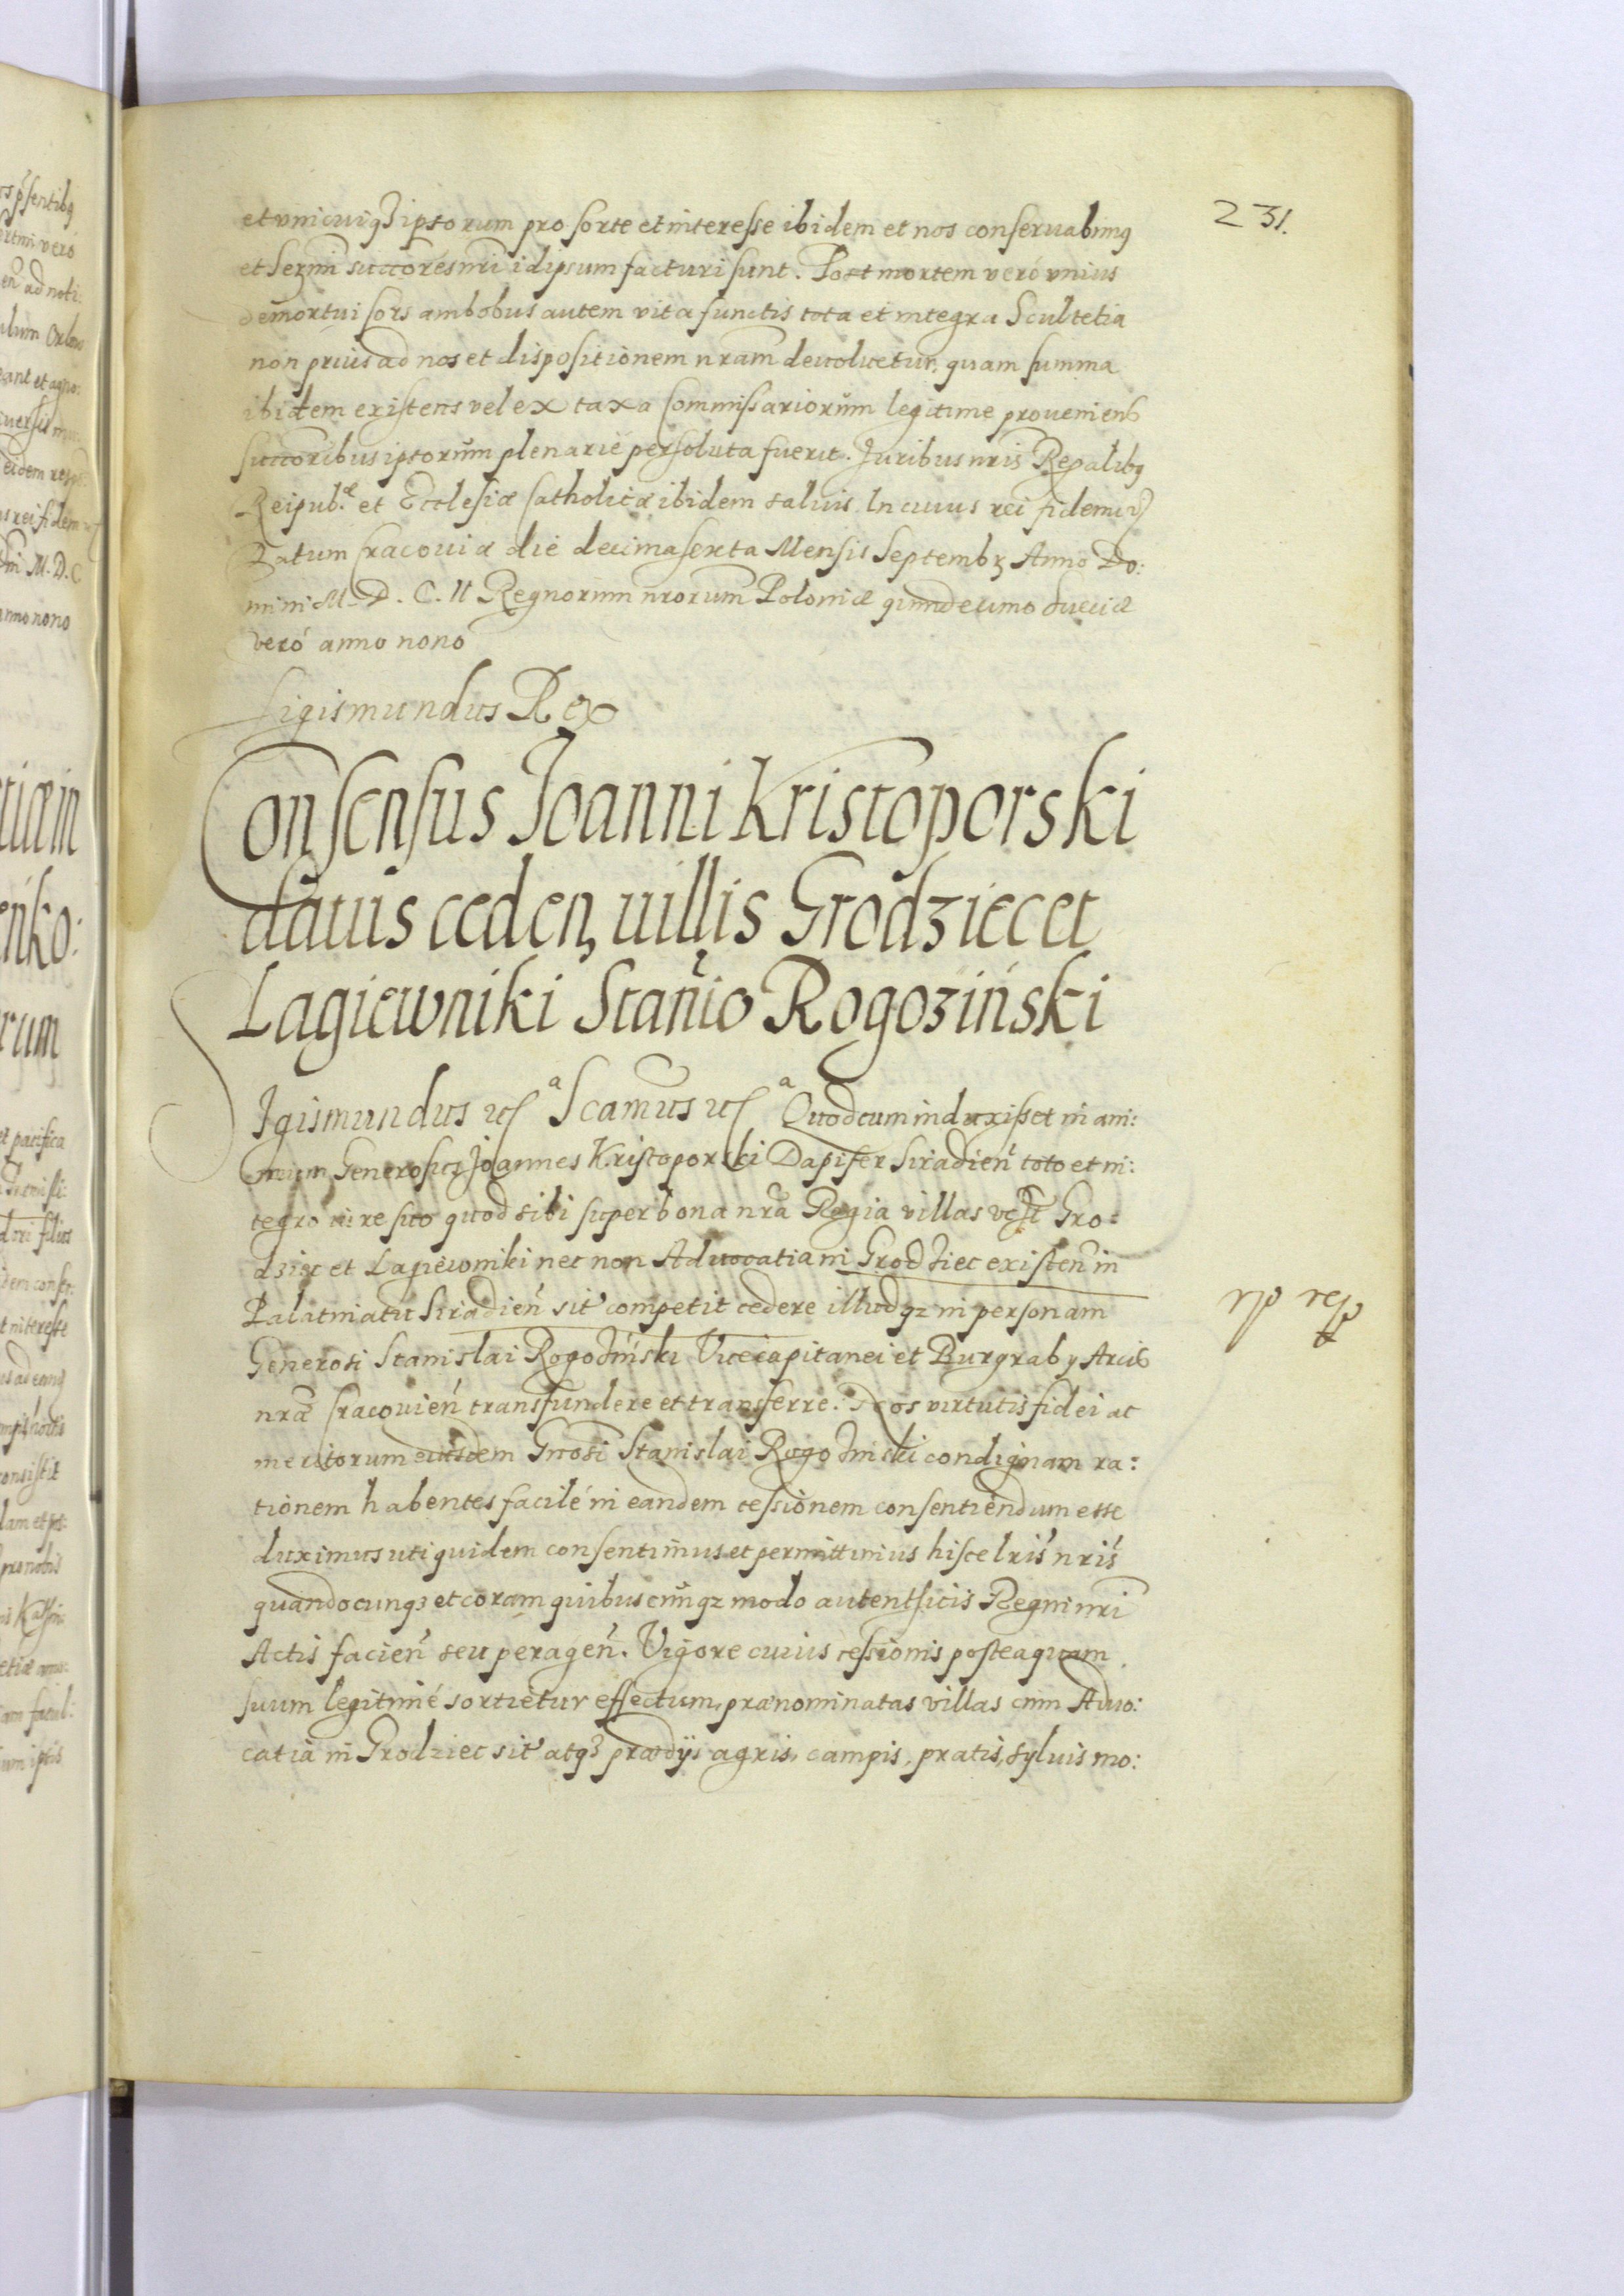 231.
et vnicuiq3 ipsorum pro sorte et interesse ibidem et nos conseruabimq
et Sermi succores nri idipsum facturi sunt. Post mortem veró vnius
demortui sors ambobus autem vita functis tota et integra Scultetia
non prius ad nos et dispositionem nram deuoluetur, quam summa
ibidem existens vel ex taxa Commissariorum legitime proueniens
succoribus ipsorum plenarie persoluta fuerit. Juribus nris Regalibq
Reipub.æ et Ecclesiæ Catholicæ ibidem saluis. In cuius rei fidem
Datum Cracouiæ die decimasexta Mensis Septemb3 Anno Do:
mini M. D. C. II Regnorum nrorum Poloniæ quindecimo Sueciæ
veró anno nono
Sigismundus Rex
Consensus Joanni Kristoporski
datus ceden, uillis Grodziec et
Lagiewniki Stanio Rogoziński
Sigismundus Scamus Quod cum induxisset in ani:
mum Generosus Joannes Kristoporski Dapifer Siradien toto et in:
tegro iure suo quod sibi super bona nra Regia villas Gro:
dziec et Lagiewniki nec non Aduocatia in Grodziec existen in
Palatinatu Siradien sit competit cedere illudqz in personam
Generosi Stanislai Rogoziński Vicecapitanei et Burgraby Arcis
nræ Cracouien transfundere et transferre. Nos virtutis fidei ac
meritorum eiusdem Gnosi Stanislai Rogozinski condignam ra:
tionem habentes facile in eandem cessionem consentiendum esse
duximus uti quidem consentimus et permittimus hisce lris nris
quandocunq3 et coram quibuscunqz modo autenthicis Regni nri
Actis facien seu peragen. Vigore cuius cessionis posteaquam
suum legitimé sortietur effectum, prænominatas villas cum Aduo:
catia in Grodziec sit atq3 prædijs agris, campis, pratis, syluis mo: